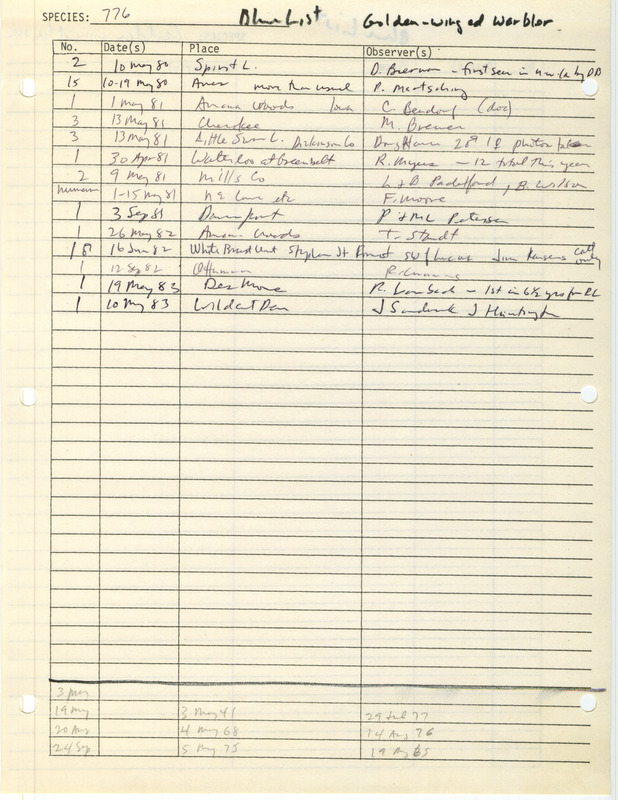 SPECIES: 776 Blue List Golden-winged Warbler
No. Date(s) Place Observer(s)
2 10 May 80 Spirit L. D. Brewer - first seen in nw Ia by DB
15 10-19 May 80 Ames more than usual P. Martsching
1 1 May 81 Amana Woods Iowa C. Bendorf (doc)
3 13 May 81 Cherokee M. Brewer
3 13 May 81 Little Swan L. Dickinson Co 2♂ 1♀ photos taken
1 30 Apr 81 Waterloo at Greenbelt R. Myers - 12 total this year
2 9 May 81 Mills Co L & B Padelford, B. Wilson
1-15 May 81 F. Moore
1 3 Sep 81 Davenport P & ML Petersen
1 26 May 82 Amana Woods T. Staudt
1 ♂ 16 Jun 82 White Breast Unit Stephens St Forest SW of Lucas Jim call only
1 12 Sep 82 Ottumwa
1 19 May 83 Des Moines - 1st in 6½ yrs for
1 10 May 83 Wildcat Den J Sandrock J Huntington
3 May
19 May 3 May 41 29 Jul 77
20 Aug 4 May 68 14 Aug 76
24 Sep 5 May 75 19 Aug 65